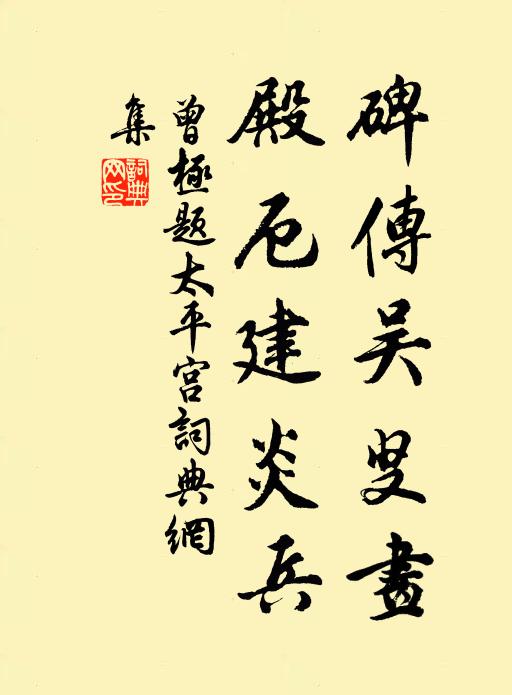 碑傳吴叟畫
殿厄建炎兵
曾極题太平宫詞典網
集
詞典網印